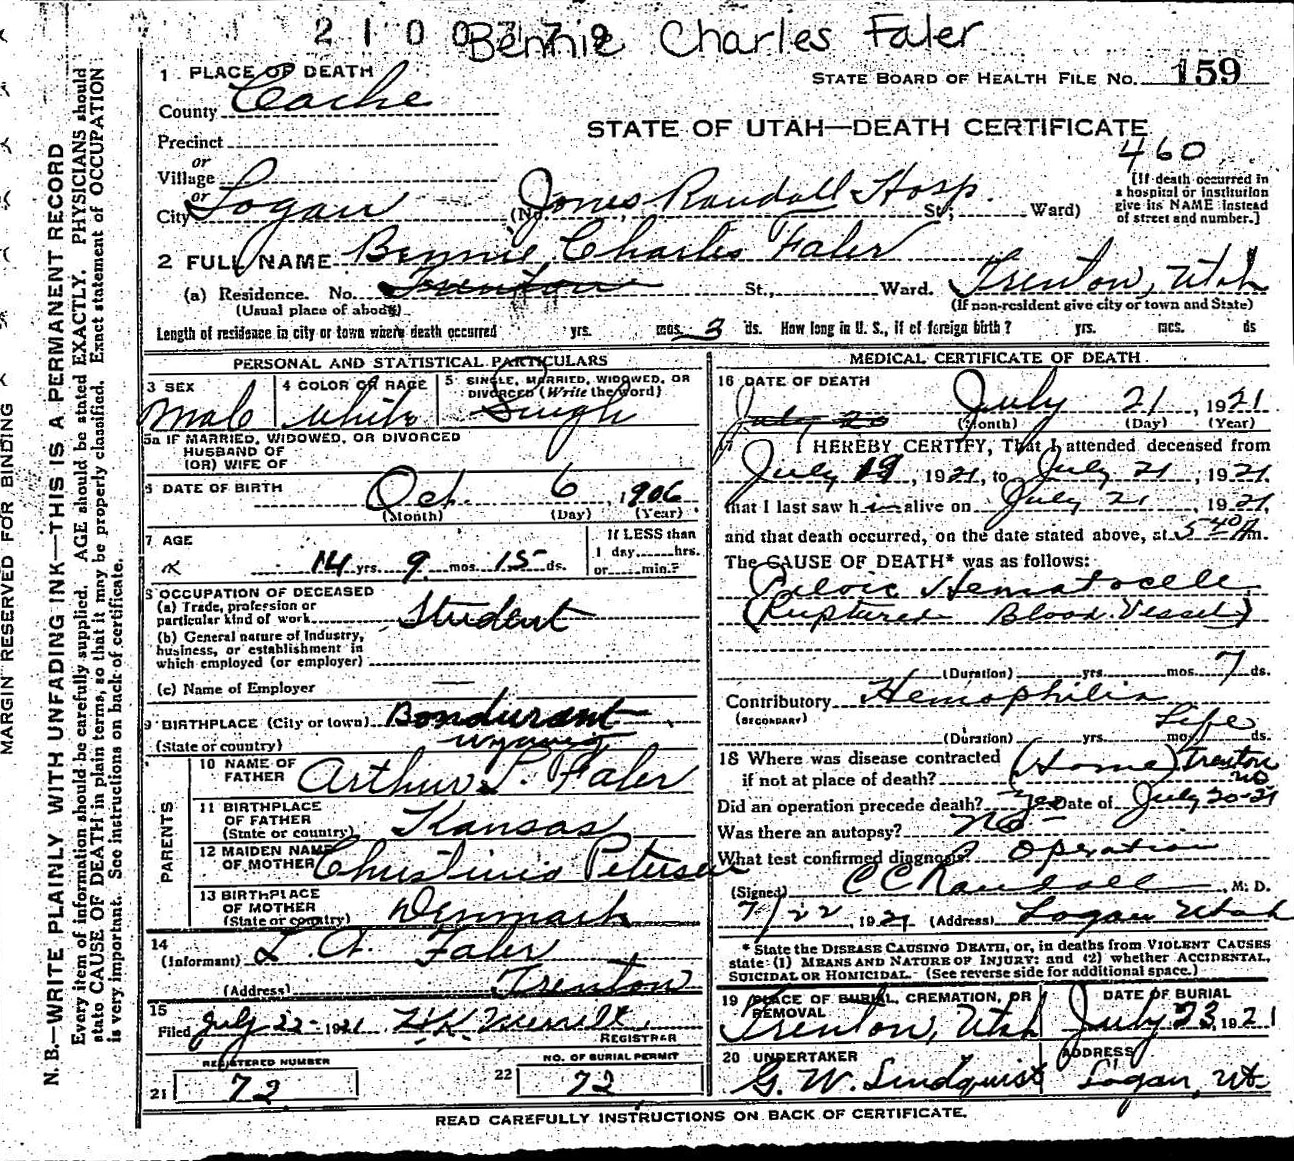 2100779
Bennie Charles Faler
1 PLACE OF DEATH
STATE BOARD OF HEALTH FILE NO. 159
County Cache
STATE OF UTAH—DEATH CERTIFICATE
460
Precinct
or
Village
or
City Logan (No Jones Randall Hosp. St; Ward)
[If death occurred in
a hospital or institution
give its NAME instead
of street and number.]
2 FULL NAME Bennie Charles Faler
(a) Residence. No. Trenton St., Ward. Trenton, Utah
(Usual place of abode) (If non-resident give city or town and State)
Length of residence in city or town where death occurred yrs. mos. 3 ds. How long in U. S., if of foreign birth? yrs. mos. ds
PERSONAL AND STATISTICAL PARTICULARS
3 SEX
Male
4 COLOR OR RACE
White
5 SINGLE, MARRIED, WIDOWED, OR
DIVORCED (Write the word)
Single
5a IF MARRIED, WIDOWED, OR DIVORCED
HUSBAND OF
(OR) WIFE OF
6 DATE OF BIRTH
Oct. 6, 1906
(Month) (Day) (Year)
7 AGE
14 yrs. 9 mos. 15 ds.
If LESS than
1 day......hrs.
or......min.?
8 OCCUPATION OF DECEASED
(a) Trade, profession or
particular kind of work Student
(b) General nature of Industry,
business, or establishment in
which employed (or employer)
(c) Name of Employer —
9 BIRTHPLACE (City or town) Bondurant
(State or country) Wyoming
PARENTS
10 NAME OF
FATHER Arthur L. Faler
11 BIRTHPLACE
OF FATHER
(State or country) Kansas
12 MAIDEN NAME
OF MOTHER Christinia Petersen
13 BIRTHPLACE
OF MOTHER
(State or country) Denmark
14
(Informant) L. A. Faler
(Address) Trenton
15
Filed July 22- 1921 Merrill
REGISTRAR
REGISTERED NUMBER
21 72
NO. OF BURIAL PERMIT
22 72
MEDICAL CERTIFICATE OF DEATH
16 DATE OF DEATH
July 20 July 21, 1921
(Month) (Day) (Year)
17 I HEREBY CERTIFY, That I attended deceased from
July 19, 1921, to July 21, 1921.
that I last saw him alive on July 21, 1921.
and that death occurred, on the date stated above, at 5 40 A m.
The CAUSE OF DEATH* was as follows:
Pelvic Hematocele
(Ruptured Blood Vessel)
(Duration) yrs. mos. 7 ds.
Contributory Hemophilia
(SECONDARY)
(Duration) yrs. mos. Life ds.
18 Where was disease contracted
if not at place of death? (Home) Trenton
Did an operation precede death? Yes Date of July 20-21
Was there an autopsy? No -
What test confirmed diagnosis? Operation
(Signed) C C Randall, M. D.
7/22, 1921 (Address) Logan Utah
* State the DISEASE CAUSING DEATH, or, in deaths from VIOLENT CAUSES
state (1) MEANS AND NATURE OF INJURY; and (2) whether ACCIDENTAL,
SUICIDAL OR HOMICIDAL. (See reverse side for additional space.)
19 PLACE OF BURIAL, CREMATION, OR
REMOVAL
Trenton, Utah
DATE OF BURIAL
July 23, 1921
20 UNDERTAKER
G. W. Lindquist
ADDRESS
Logan, Ut
READ CAREFULLY INSTRUCTIONS ON BACK OF CERTIFICATE.
MARGIN RESERVED FOR BINDING
N. B.—WRITE PLAINLY WITH UNFADING INK—THIS IS A PERMANENT RECORD
Every item of information should be carefully supplied. AGE should be stated EXACTLY. PHYSICIANS should
state CAUSE OF DEATH in plain terms, so that it may be properly classified. Exact statement of OCCUPATION
is very important. See instructions on back of certificate.